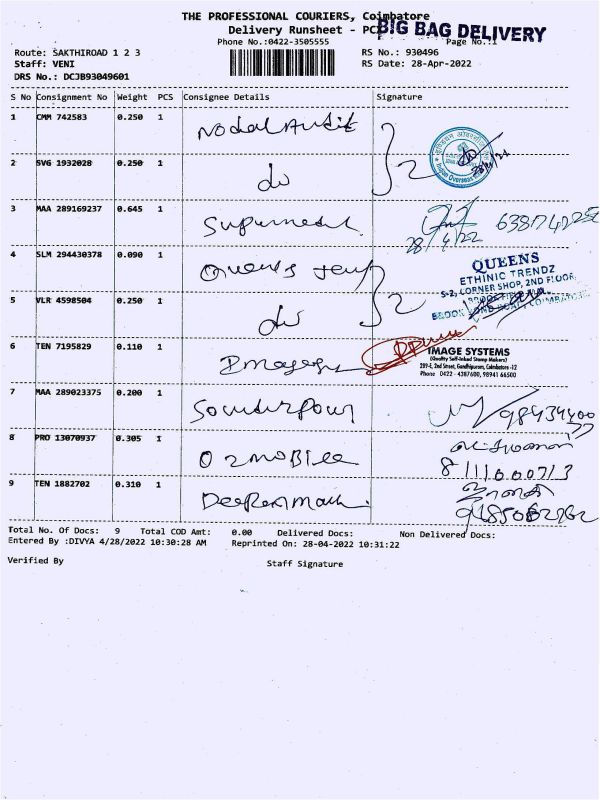 THE PROFESSIONAL COURIERS, Coimbatore
Delivery Runsheet - PCI
BIG BAG DELIVERY
Phone No.:0422-3505555
Page No.:1
Route: SAKTHIROAD 1 2 3
RS No.: 930496
Staff: VENI
RS Date: 28-Apr-2022
DRS No.: DCJB93049601
S No Consignment No Weight PCS Consignee Details Signature
1 CMM 742583 0.250 1 Nodal Audit
2 SVG 1932028 0.250 1 do 2
Indian Overseas
3 MAA 289169237 0.645 1
28/4/22
4 SLM 294430378 0.090 1 Queens
QUEENS
ETHINIC TRENDZ
S-2, CORNER SHOP, 2ND FLOOR,
5 VLR 4598504 0.250 1 do 2
COIMBATORE
6 TEN 7195829 0.110 1
IMAGE SYSTEMS
(Quality Self-Inked Stamp Makers)
289-E, 2nd Street, Gandhipuram, Coimbatore -12
Phone 0422 - 4387600, 98941 66500
7 MAA 289023375 0.200 1
8 PRO 13070937 0.305 1 Ozmobiee
8111000713
9 TEN 1882702 0.310 1
Total No. Of Docs: 9 Total COD Amt: 0.00 Delivered Docs: Non Delivered Docs:
Entered By :DIVYA 4/28/2022 10:30:28 AM Reprinted On: 28-04-2022 10:31:22
Verified By
Staff Signature